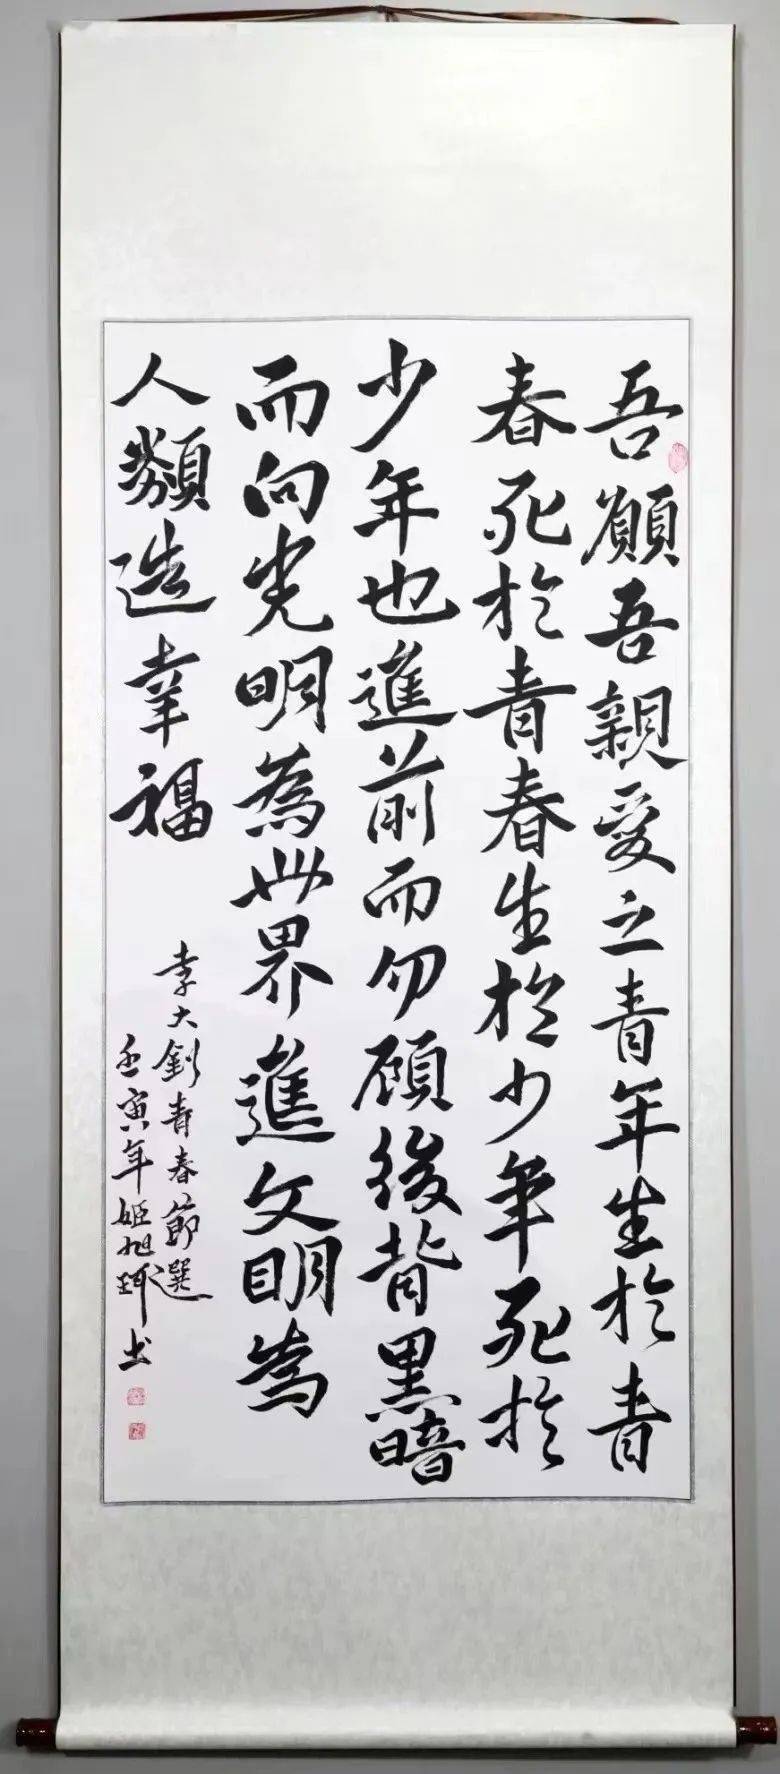 吾願吾親愛之青年生於青
春死於青春生於少年死於
少年也進前而勿顧後背黑暗
而向光明為世界進文明為
人類造幸福
李大釗青春節選
壬寅年姬旭珂书